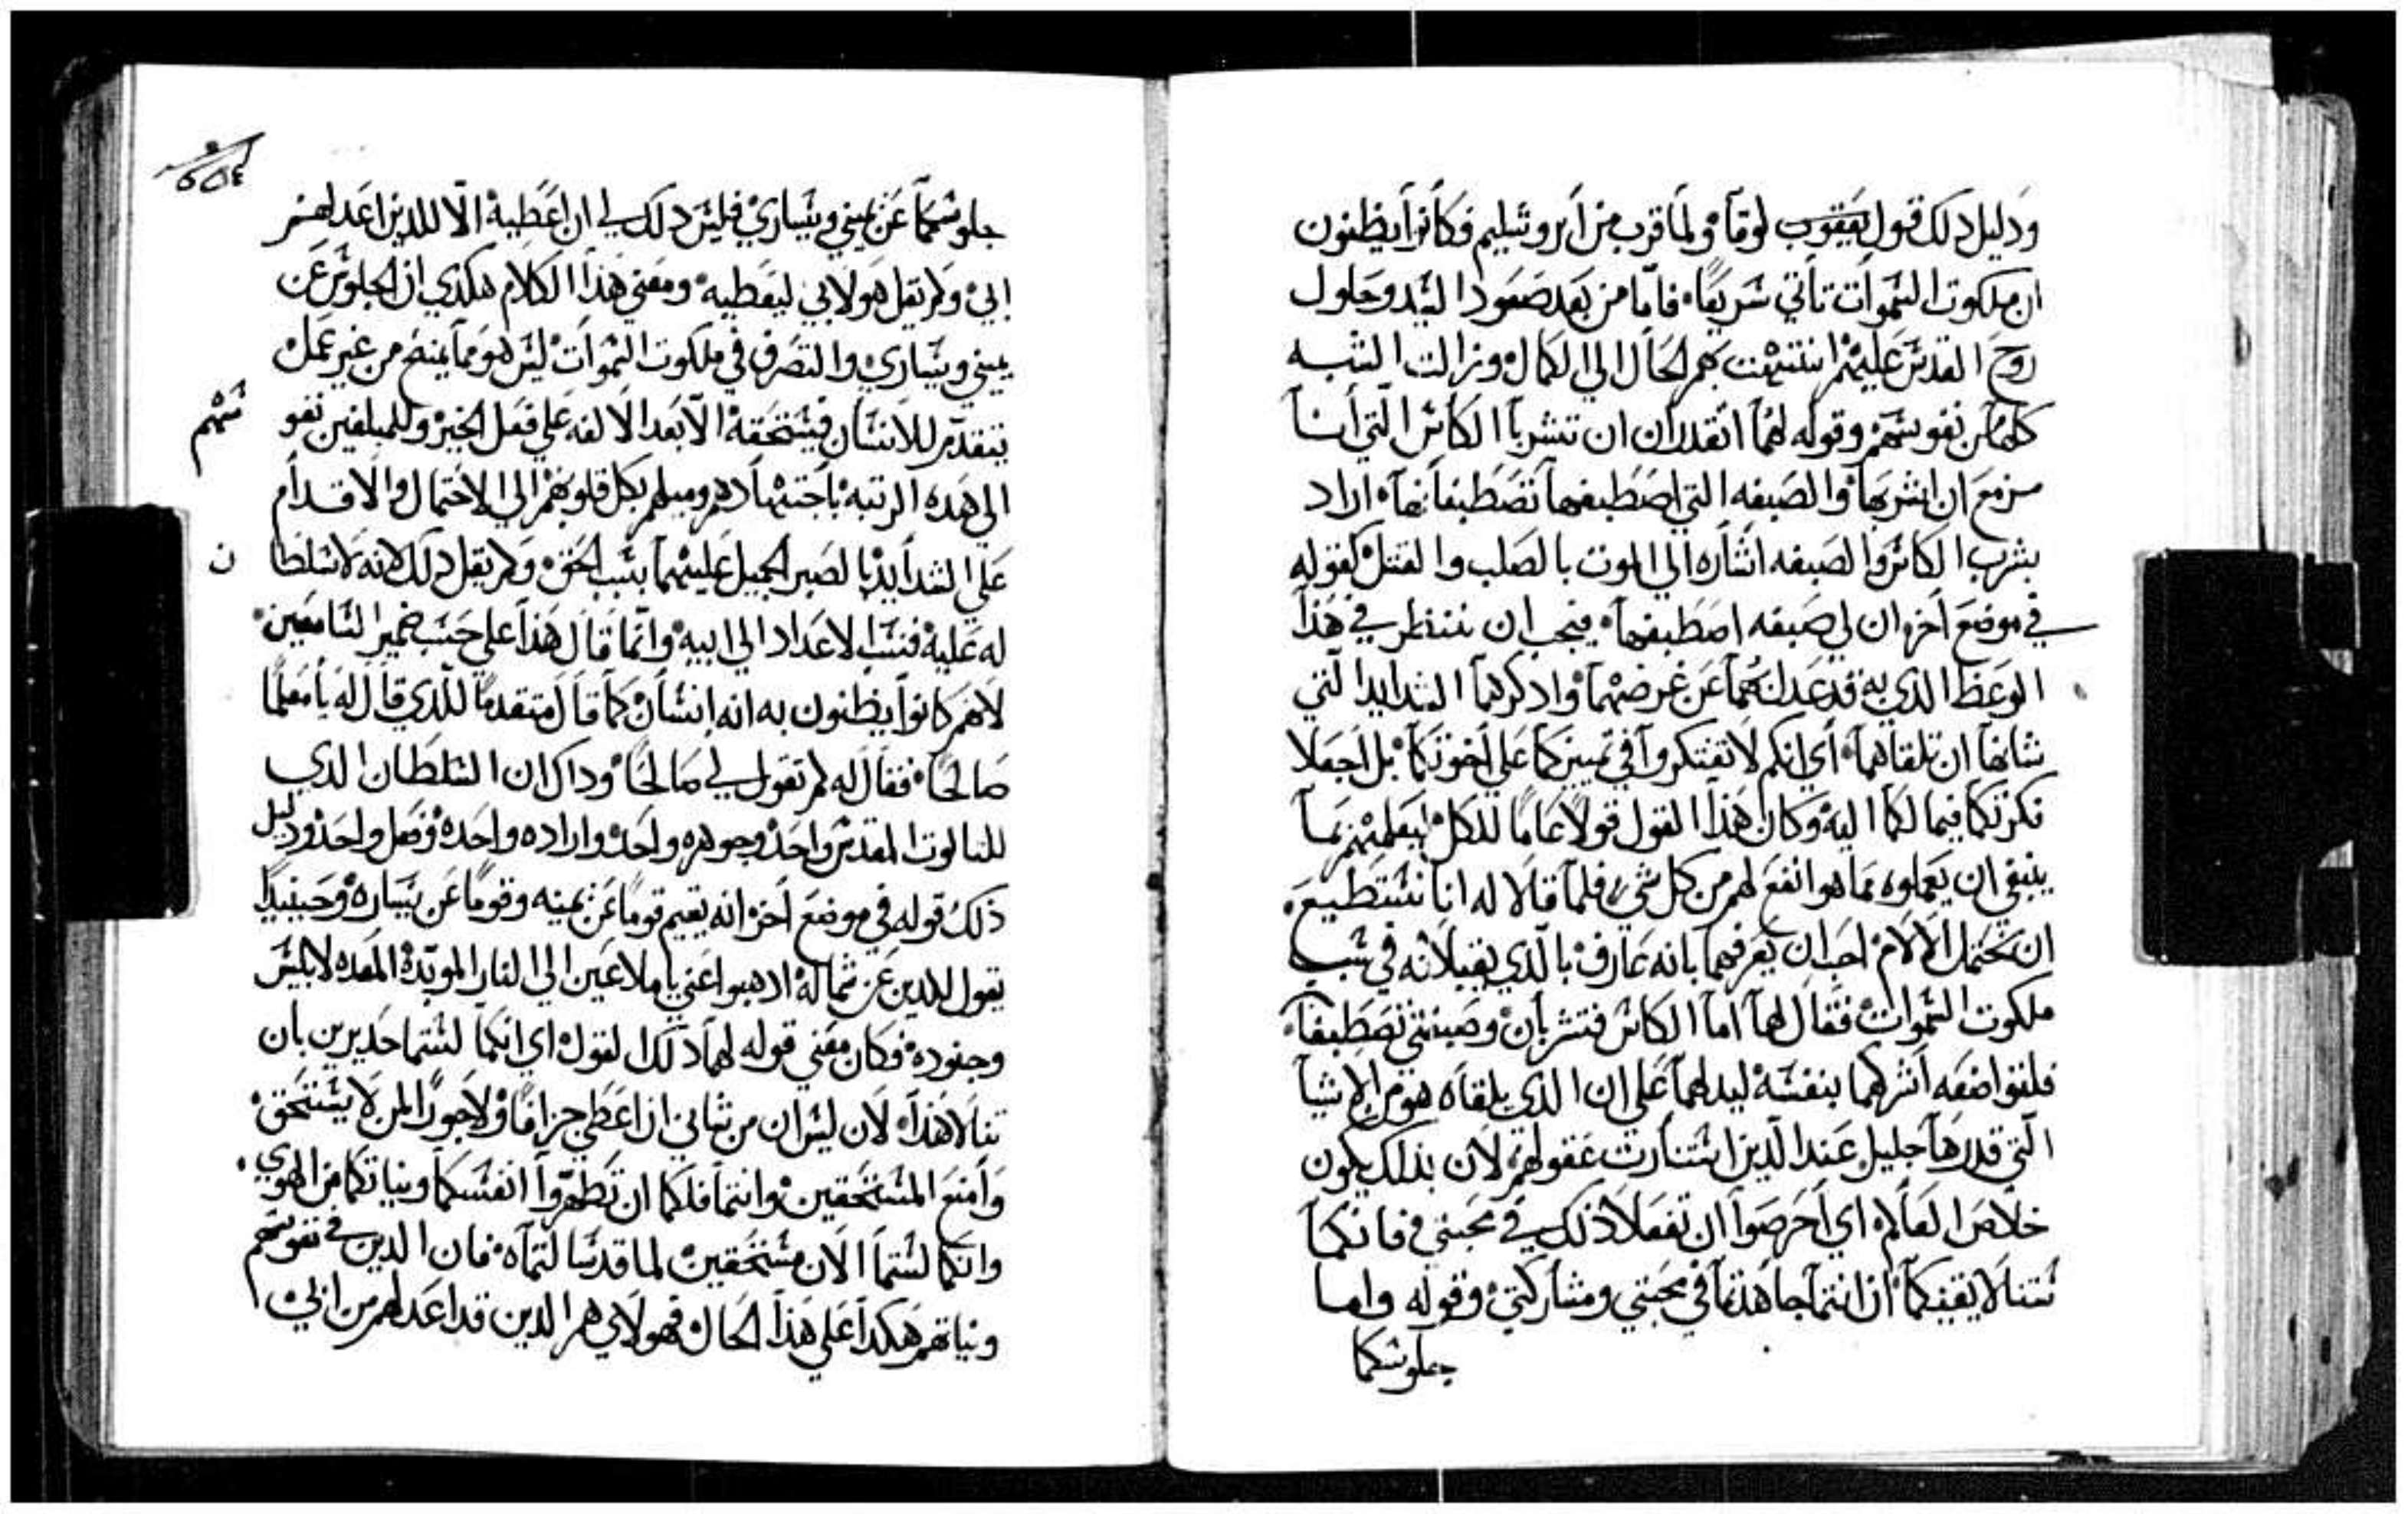 ودليل دلك قول يعقوب لوقا ولما قرب من ايروشليم فكانوا يظنون
ان ملكوت السموات تاتي سريعا فاما من بعد صعود السيد وحلول
روح القدس عليهم انتهت بهم الحال الي الكمال وزالت الشبه
كلها من نفوسهم وقوله لهما اتقدران ان تشربا الكاس التي انا
مزمع ان اشربها والصبغه التي اصطبغها تصطبغانها اراد
بشرب الكاس والصبغه اشاره الي الموت بالصلب والقتل كقوله
في موضع اخر ان لي صبغه اصطبغها فيجب ان ننظر في هذا
الوعظ الذي به قد عدلهما عن غرضهما واذكرهما الشدايد التي
شانها ان تلقاهما اي انكم لا تفتكروا في تمييزكما علي اخوتكما بل اجعلا
فكرتكما فيما لكما اليه وكان هذا القول قولا عاما للكل ليعلمهم بما
ينبغي ان يعملوه مما هو انفع لهم من كل شي فلما قالا له انا نستطيع
ان نحتمل الالام احب ان يعرفهما بانه عارف بالذي يقبلانه في سبب
ملكوت السموات فقال لهما اما الكاس فتشربان وصبغتي تصطبغا
فلتواضعه اشركهما بنفسه ليدلهما علي ان الذي يلقاه هو من الاشيا
التي قدرها جليل عند الذين استنارت عقولهم لان بذلك يكون
خلاص العالم اي احرصوا ان تفعلا ذلك في محبتي فانكما
تتنالا يقينكما ان انتما جاهدتما في محبتي ومشاركتي وقوله واما
جلوسكما
جلوسكما عن يميني ويساري فليس دلك لي ان اعطيه الا للدين اعد لهم
ابي ولم يقل هو لابي ليعطيه ومعني هذا الكلام هكدي ان الجلوس عن
يميني ويساري والتصرف في ملكوت السموات ليس هو مما يمنح من غير عمل
يتقدم للانسان فيستحقه الا بعد الالفه علي فعل الخير وللمبلغين نفو
سهم
الي هده الرتبه باجتهادهم وميلهم بكل قلوبهم الي الاحتمال والاقدام
علي الشدايد بالصبر الجميل عليهما بسبب الحق ولم يقل دلك لانه لا سلطا
ن
له عليه فنسب الاعداد الي ابيه وانما قال هذا علي حسب ضمير السامعين
لانهم كانوا يظنون به انه انسان كما قال متقدما للذي قال له يا معلما
صالحا فقال له لم تقول لي صالحا وداك ان السلطان الدي
للتالوت المقدس واحد وجوهره واحد واراده واحده وفعل واحد ودليل
ذلك قوله في موضع اخر انه يقيم قوما عن يمينه وقوما عن يساره وحينيدا
يقول للدين عن شماله ادهبوا عني يا ملاعين الي النار الموبده المعده لابليس
وجنوده فكان معني قوله لهما دلك القول اي انكما لستما جديرين بان
تنالا هذا لان ليس ان من شاني ان اعطي جزافا ولا جودا لمن لا يستحق
وامنع المستحقين وانتما فلكما ان تطهروا انفسكما ونياتكما من الهوي
وانكما لستما الان مستحقين لما قد سالتماه فان الدين في نفوسهم
ونياتهم هكدا علي هذا الحال فهولاي هم الدين قد اعد لهم من ابي